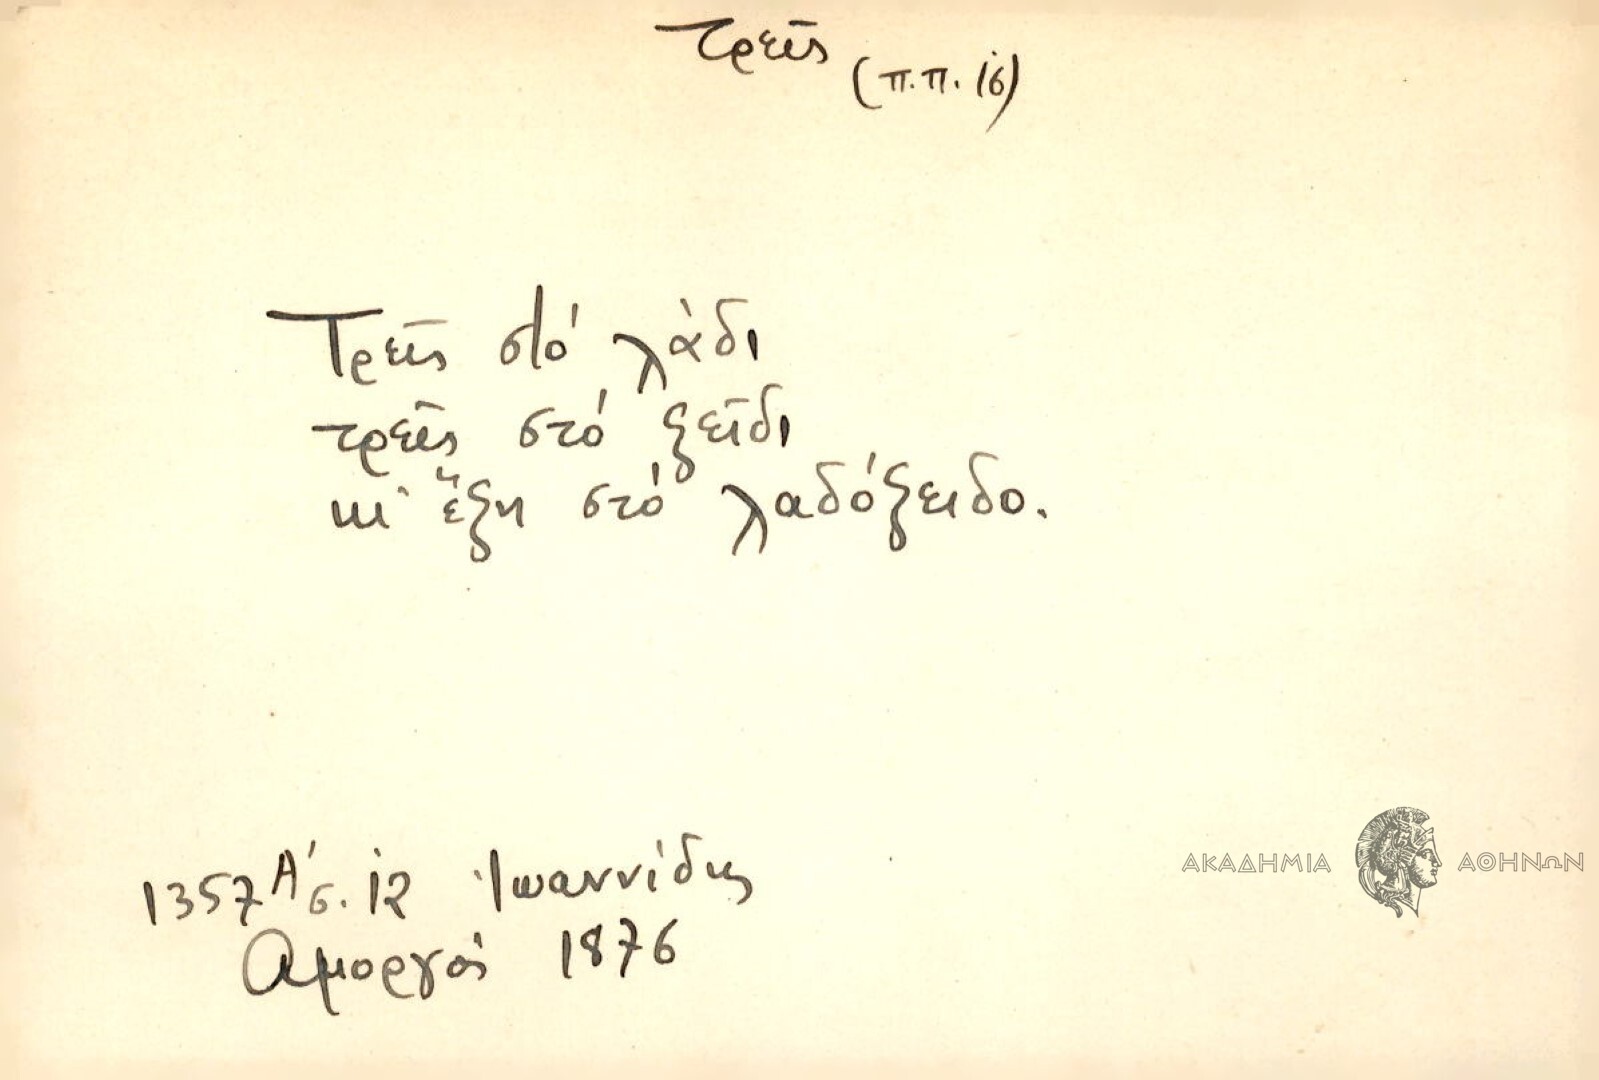 τρεῖς (π.π. 16)
Τρεῖς στό λάδι
τρεῖς στό ξεῖδι
κι' ἕξη στό λαδόξειδο.
ΑΚΑΔΗΜΙΑ ΑΘΗΝΩΝ
1357 Α' σ. 12 Ἰωαννίδης
Ἀμοργός 1876